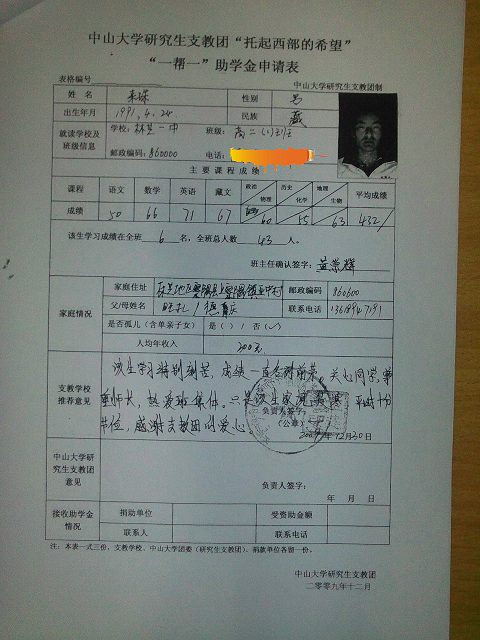 中山大学研究生支教团“托起西部的希望”
“一帮一”助学金申请表
表格编号
中山大学研究生支教团制
姓 名 性别 男
出生年月 1991.4.24 民族 藏
就读学校及班级信息 学校：林芝一中 班级：高二(1)班
邮政编码：860000 电话：
主 要 课 程 成 绩
课程 语文 数学 英语 藏文 政治 物理 历史 化学 地理 生物 平均成绩
成绩 50 66 71 67 60 55 63 432
该生学习成绩在全班 6 名，全班总人数 43 人。
班主任确认签字：
家庭情况 家庭住址 邮政编码 860600
父/母姓名 联系电话
是否孤儿（含单亲子女） 是（ ）/ 否（✓）
人均年收入 300元
支教学校推荐意见
该生学习特别刻苦，成绩一直名列前茅。关心同学，尊
重师长，热爱班集体。只是该生家境 平时十分
节俭，感谢支教团的爱心。
负责人签字：
（公章）
2009年12月30日
中山大学研究生支教团意见
负责人签字：
年 月 日
接收助学金情况 捐助单位 受资助金额
联系人 联系电话
注：本表一式三份，支教学校、中山大学团委（研究生支教团）、捐款单位各留一份。
中山大学研究生支教团
二零零九年十二月